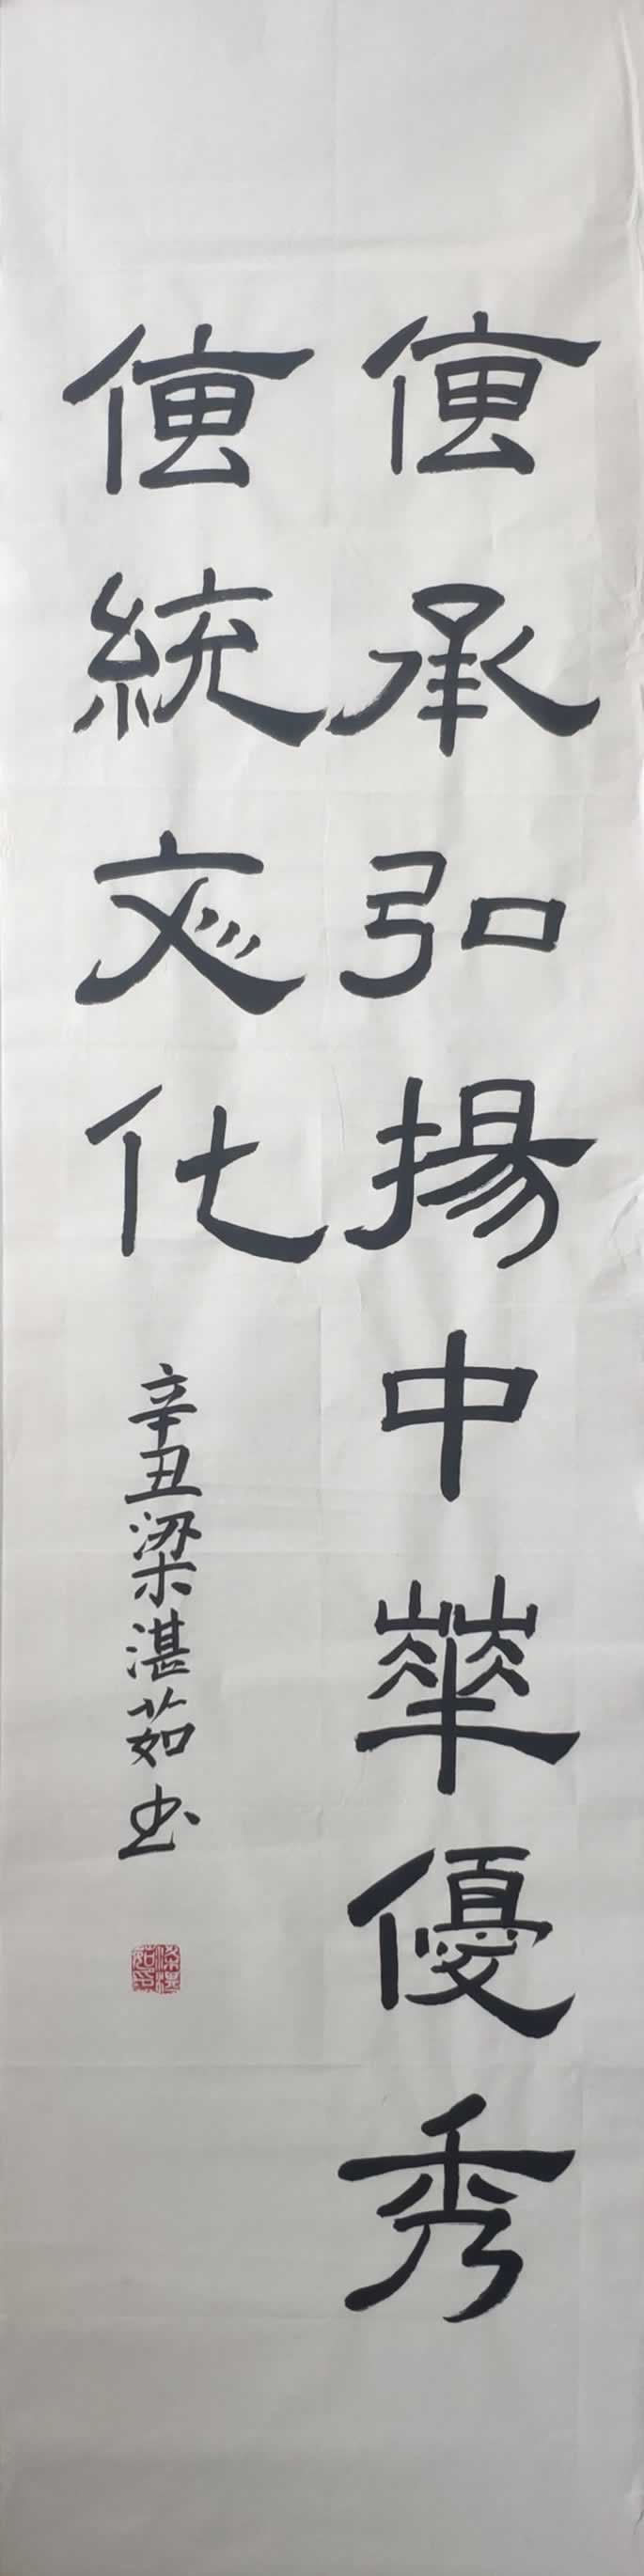 傳承弘揚中華優秀
傳統文化
辛丑梁湛茹书
梁湛茹印